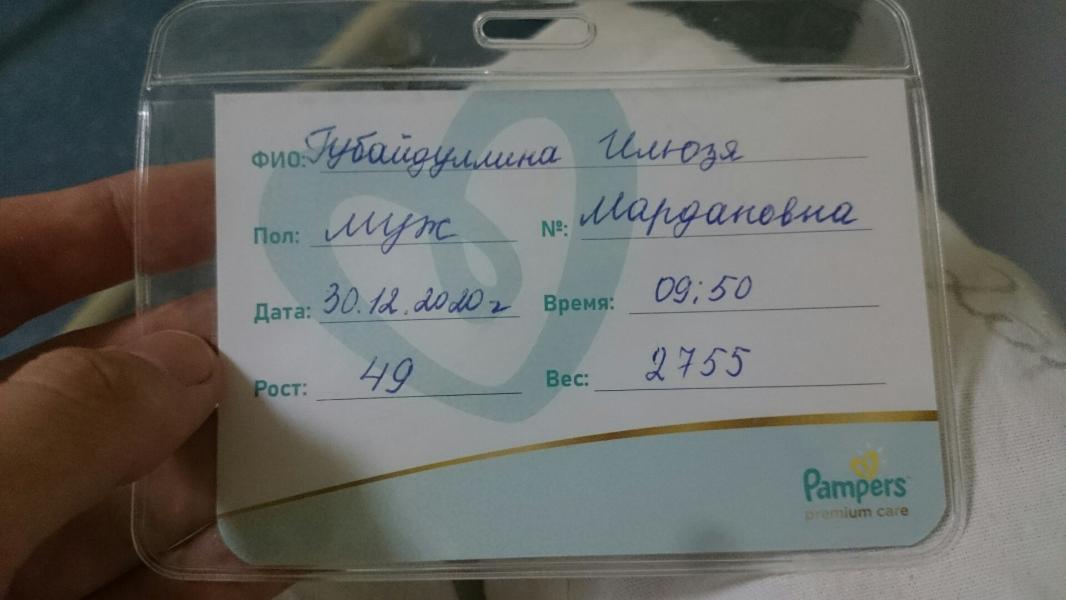 ФИО: Губайдуллина Илюзя
Пол: муж №: Мардановна
Дата: 30.12.2020г Время: 09:50
Рост: 49 Вес: 2755
Pampers
premium care